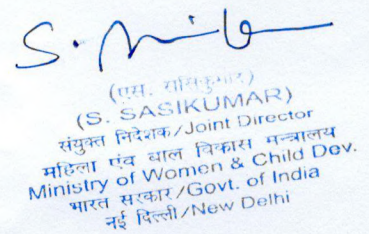 (एस. शशिकुमार)
(S. SASIKUMAR)
संयुक्त निदेशक/Joint Director
महिला एंव बाल विकास मन्त्रालय
Ministry of Women & Child Dev.
भारत सरकार/Govt. of India
नई दिल्ली/New Delhi